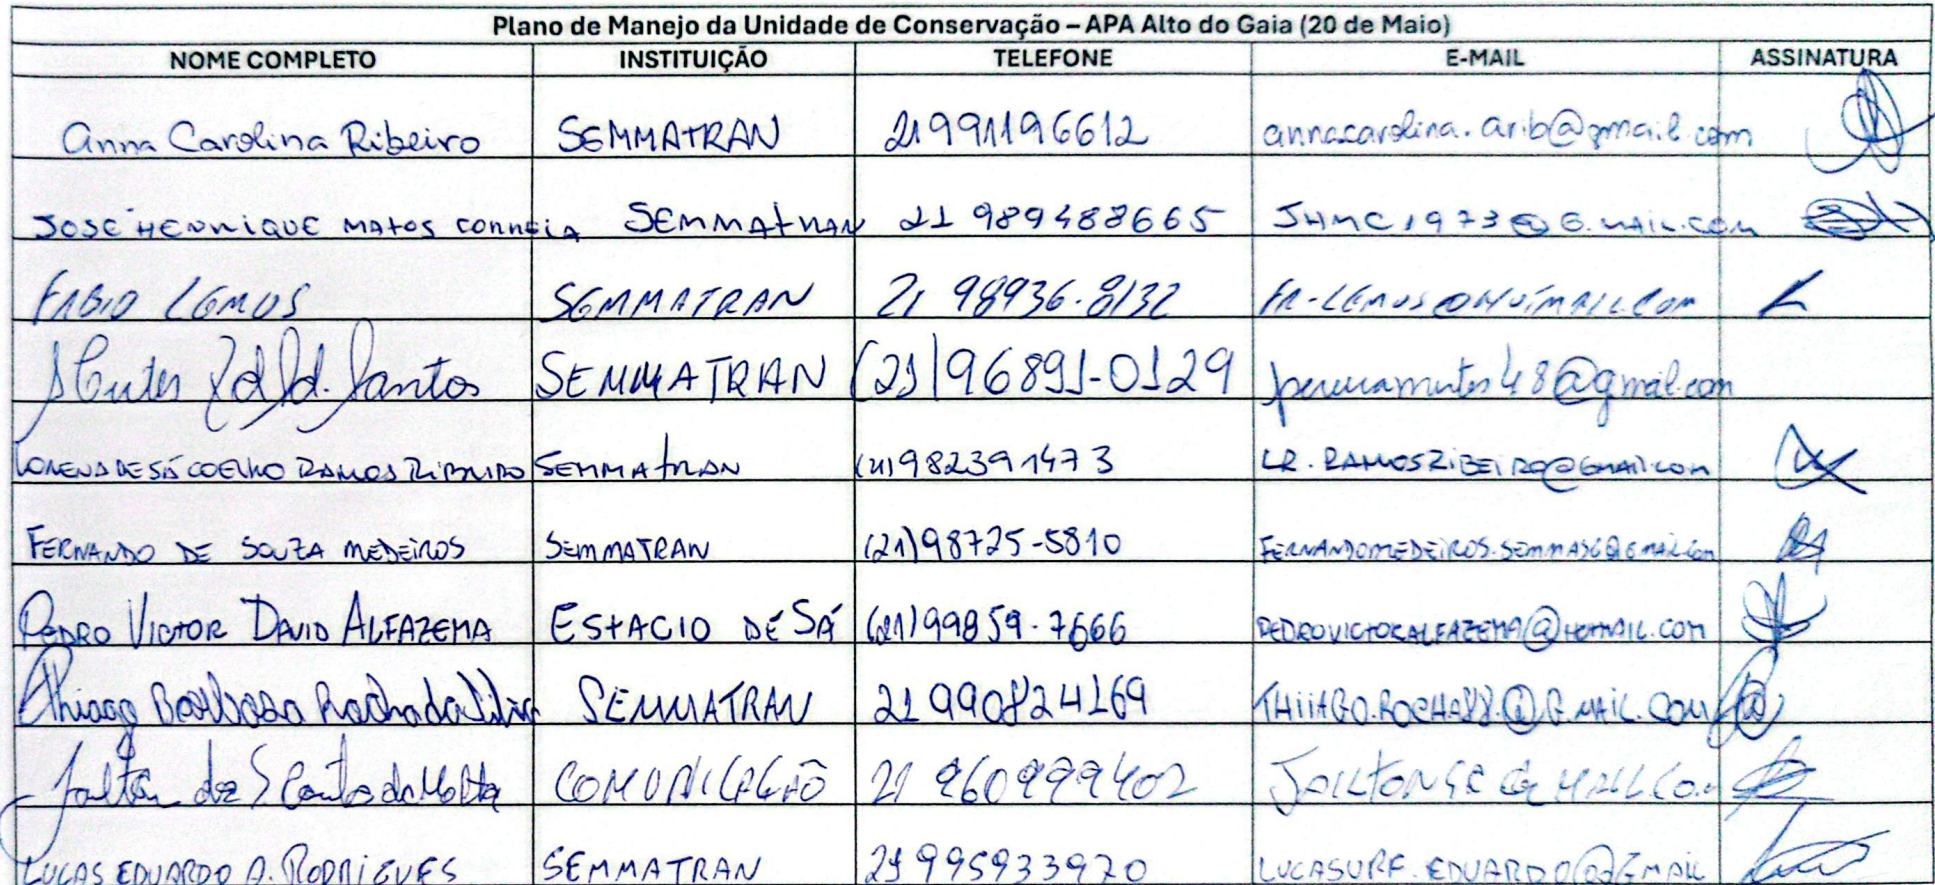 Plano de Manejo da Unidade de Conservação – APA Alto do Gaia (20 de Maio)
NOME COMPLETO INSTITUIÇÃO TELEFONE E-MAIL ASSINATURA
Anna Carolina Ribeiro SEMMATRAN 21991196612 annacarolina.arib@gmail.com
JOSÉ HENRIQUE MATOS CORREIA SEMMATRAN 21 989488665 JHMC1973@G.MAIL.COM
FABIO LEMOS SEMMATRAN 21 98936-8132
Santos SEMMATRAN (21)96891-0129
LORENA DE SÁ COELHO RAMOS RIBEIRO SEMMATRAN (21)982391473 LR.RAMOSRIBEIRO@GMAIL.COM
FERNANDO DE SOUZA MEDEIROS SEMMATRAN (21)98725-5810
PEDRO VICTOR DAVID ALFAZEMA ESTACIO DE SÁ (21)99859-7666 PEDROVICTORALFAZEMA@HOTMAIL.COM
Thiago Barbosa Rocha da Silva SEMMATRAN 21 990824169 THIIAGO.ROCHA88.@G.MAIL.COM
COMUNICAÇÃO 21 960999402
LUCAS EDUARDO A. RODRIGUES SEMMATRAN 21 995933970 LUCASURF.EDUARDO@GMAIL